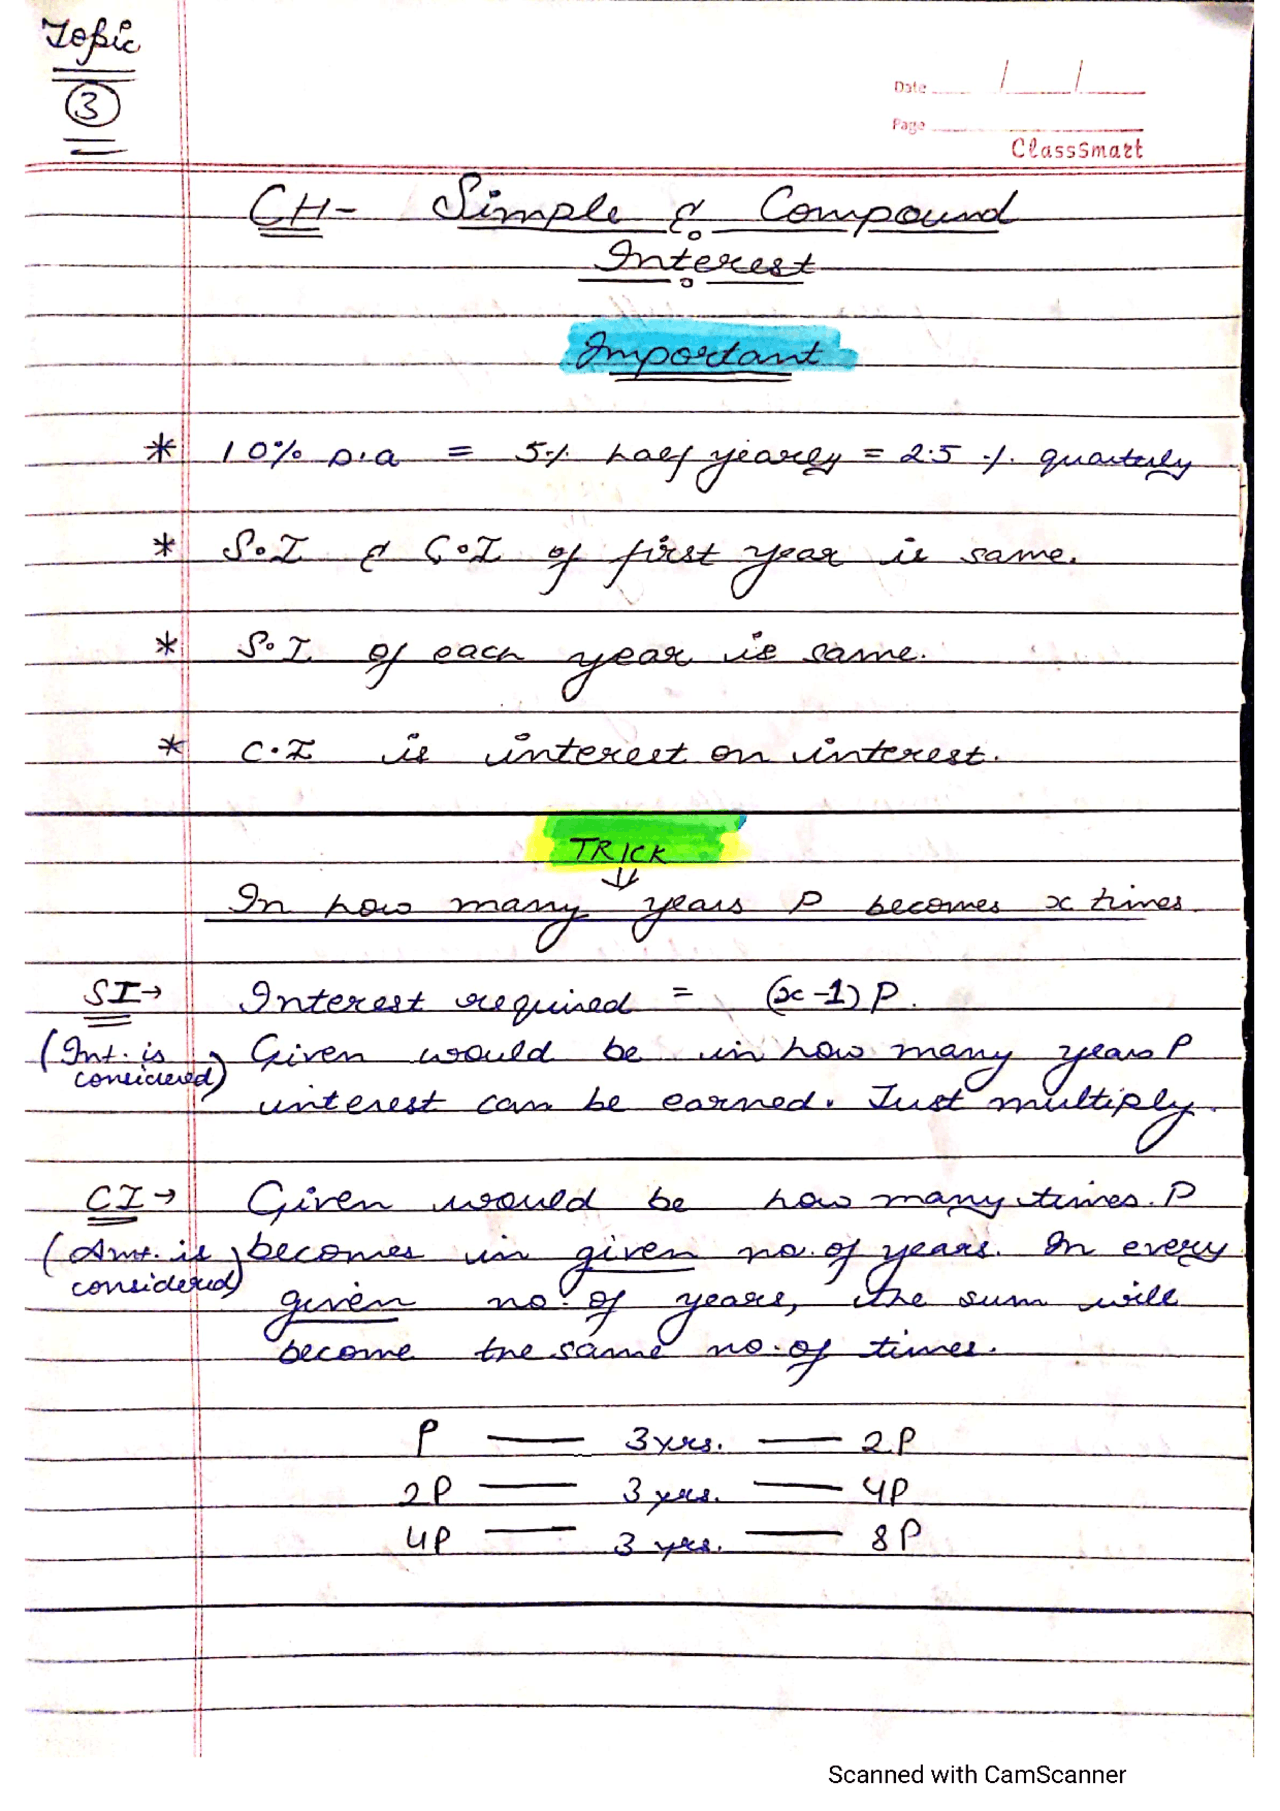 Topic
3
Date
Page
ClassSmart
CH- Simple & Compound
Interest
Important
* 10% p.a = 5% half yearly = 2.5 % quarterly
* S.I & C.I of first year is same.
* S.I of each year is same.
* C.I is interest on interest.
TRICK
↓
In how many years P becomes x times
SI→ Interest required = (x-1) P.
(Int. is considered) Given would be in how many years P
interest can be earned. Just multiply.
CI→ Given would be how many times P
(Amt. is considered) becomes in given no. of years. In every
given no. of years, the sum will
become the same no. of times.
P — 3 yrs. — 2P
2P — 3 yrs. — 4P
4P — 3 yrs. — 8P
Scanned with CamScanner